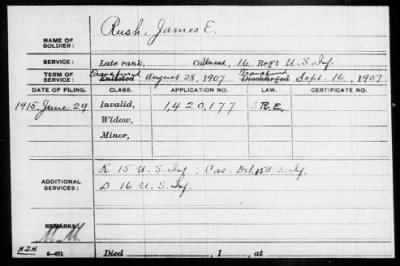 NAME OF SOLDIER: Rush, James E.
SERVICE: Late rank, Cas. Det., 16 Reg't U.S. Inf.
TERM OF SERVICE: Transferred Enlisted August 28, 1907 Transferred Discharged Sept. 16, 1907
DATE OF FILING. CLASS. APPLICATION NO. LAW. CERTIFICATE NO.
1915 June 29 Invalid, 1,420,177 R.E.
Widow,
Minor,
ADDITIONAL SERVICES: K 15 U.S. Inf; Cas. Det. 15 U.S. Inf.
D 16 U.S. Inf.
REMARKS:
Died , 1 , at